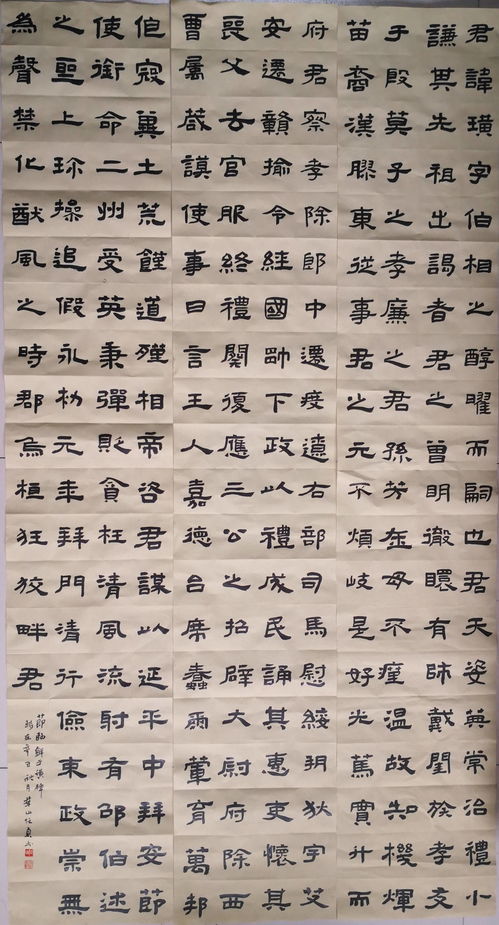 君諱璜字伯相之醇曜而嗣也君天姿英常治禮小
謙其先祖出謁者君之曾明徹瞏有師戴閏於孝友
于殷莫子之孝廉之君孫芳並母不痤溫故知機煇
苗裔漢膠東從事君之元不煩岐是好光篤實升而
府君察孝除郎中遷度遼右部司馬慰綏朔狄字艾
安遷贛揄令經國帥下政以禮成民誦其惠吏懷其
喪父去官服終禮闋復應三公之招辟大尉府除西
曹屬葴謨使事曰言王人嘉德台席蠢爾輩育萬邦
伯寇冀土荒饉道殣相帝咨君謀以延平中拜安節
使銜命二州受英秉彈貶貪枉清風流射有邵伯述
之亟上珍操追假永初元年拜門清行儉東政崇無
為聲禁化猷風之時郡烏桓狂狡畔君
節臨鮮于璜碑
時在辛丑秋月華山任